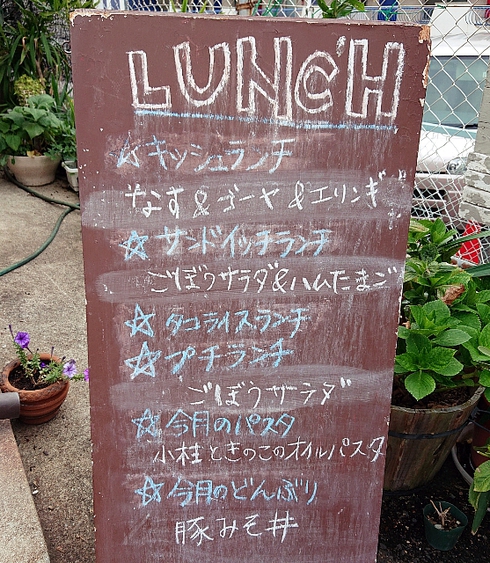 LUNCH
☆キッシュランチ
なす&ゴーヤ&エリンギ
☆サンドイッチランチ
ごぼうサラダ&ハムたまご
☆タコライスランチ
☆プチランチ
ごぼうサラダ
☆今月のパスタ
小柱ときのこのオイルパスタ
☆今月のどんぶり
豚みそ丼